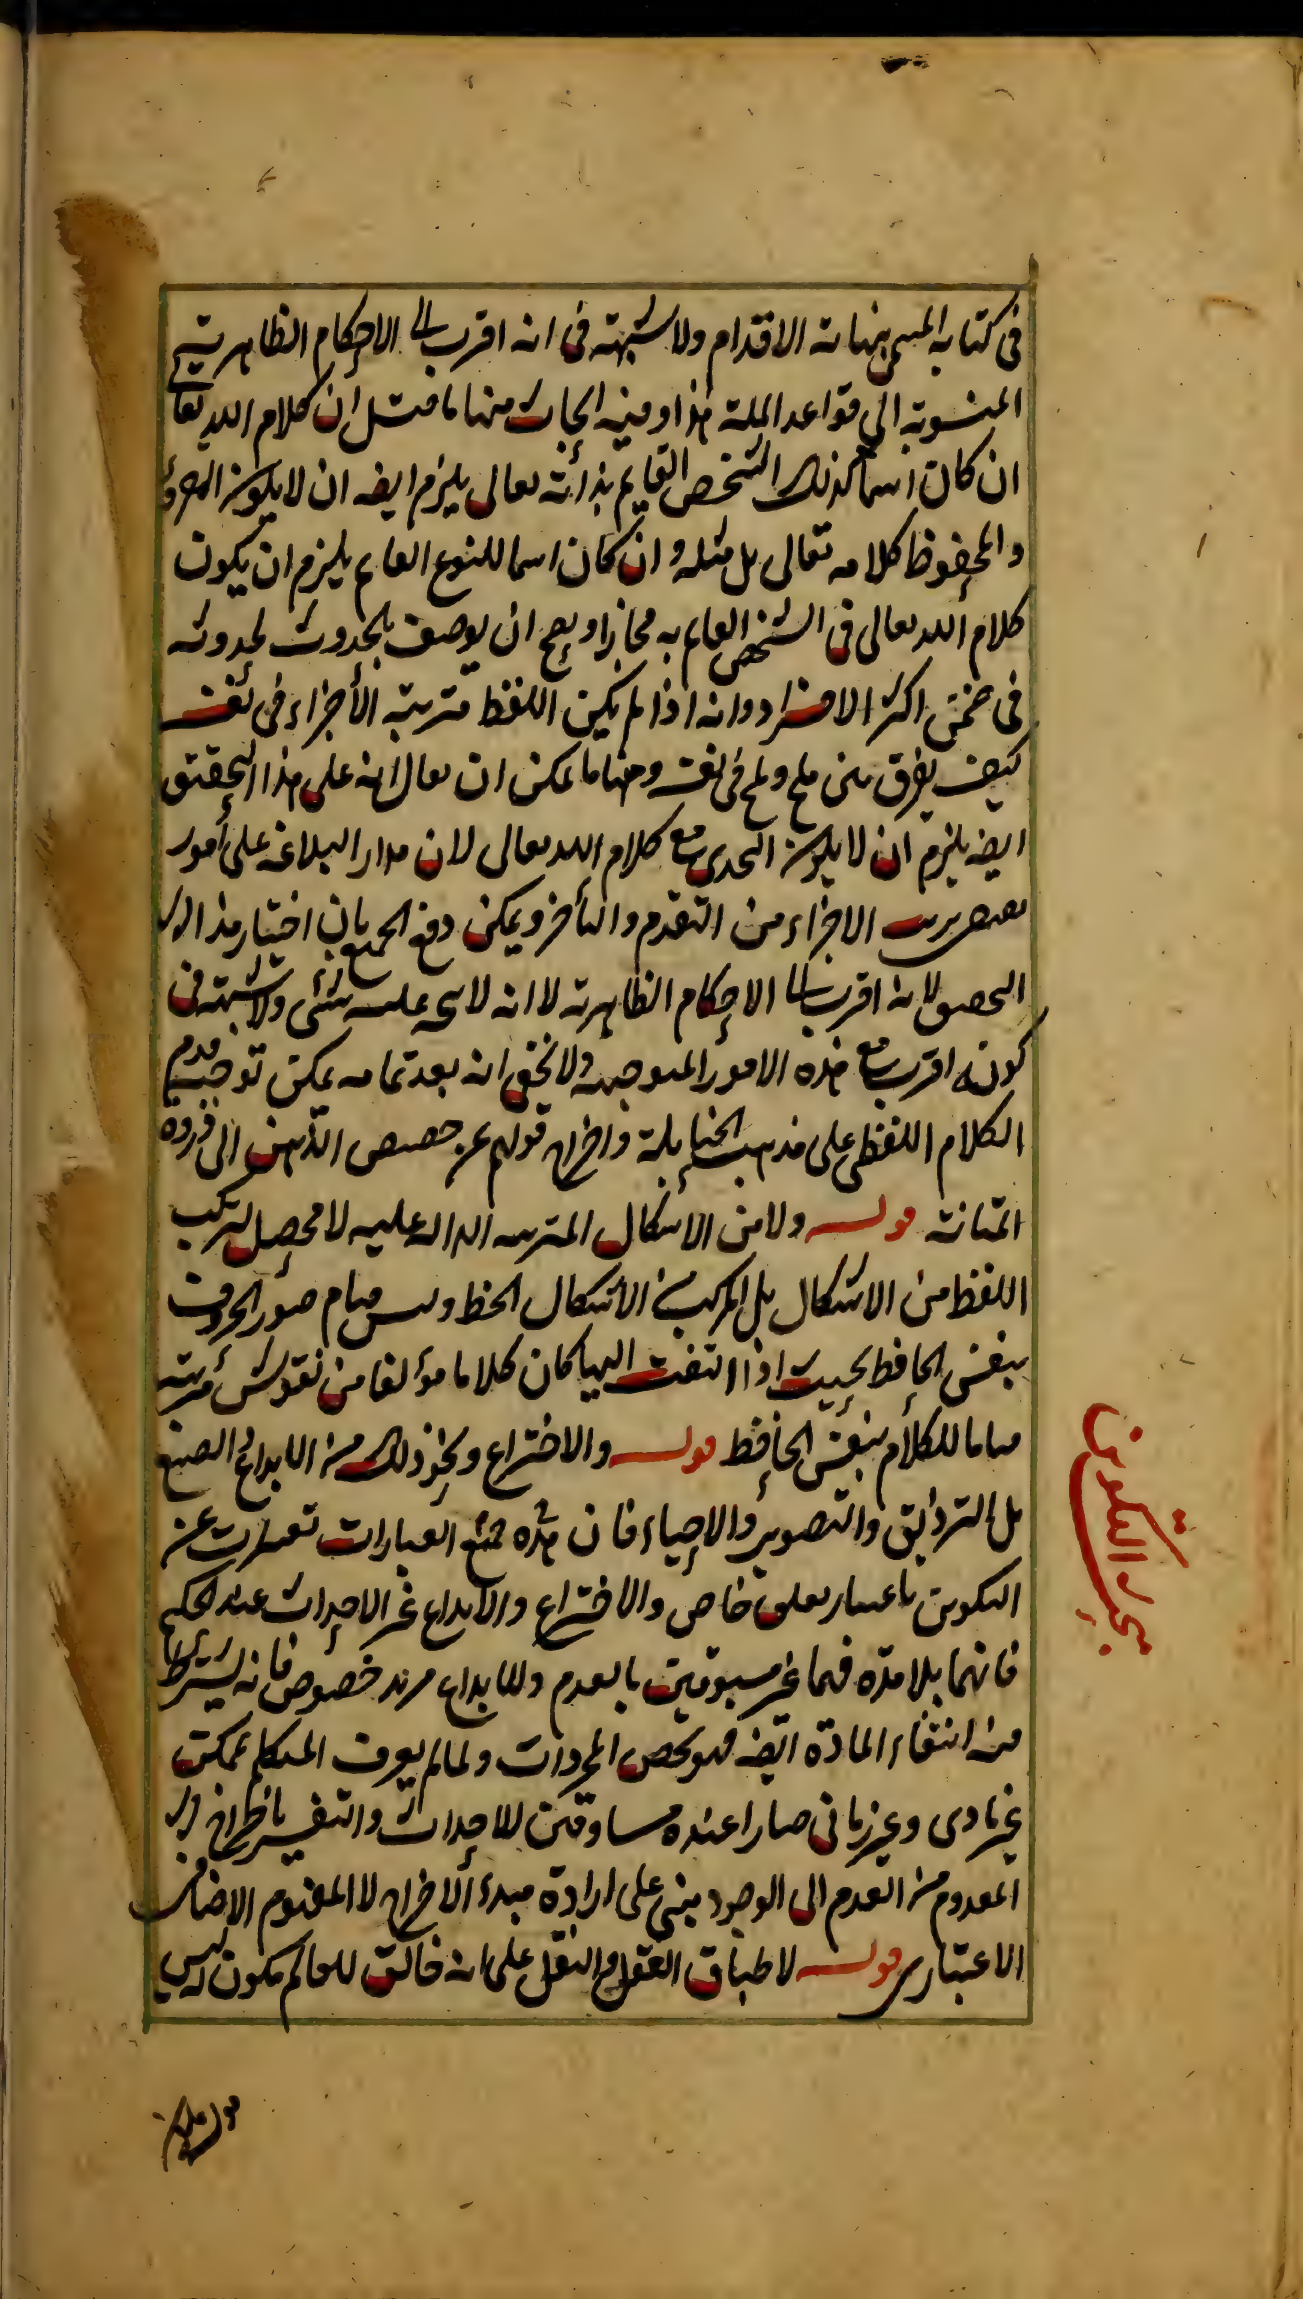 في كتابه المسمى بنهاية الاقدام ولا شبهة في انه اقرب الى الاحكام الظاهرية
المنسوبة الى قواعد الملة هذا وفيه ابحاث منها ما قيل ان كلام الله تعا
ان كان اسما لذلك الشخص القايم بذاته تعالى يلزم ايضه ان لا يكون المقروء
والمحفوظ كلامه تعالى بل مثله وان كان اسما للنوع القايم يلزم ان يكون
كلام الله تعالى في الشخص القايم به مجازا ويصح ان يوصف بالحدوث لحدوثه
في ضمن اكثر الافراد وانه اذا لم يكن اللفظ مترتبة الأجزاء في نفسه
كيف يفرق بين ملح ولمح في نفسه ومنها ما يمكن ان يقال انه على هذا التحقيق
ايضه يلزم ان لا يكون التحدي مع كلام الله تعالى لان مدار البلاغة على أمور
الاجزاء من التقدم والتأخر ويمكن دفع الجميع بان اختيار هذا
لانه اقرب الى الاحكام الظاهرية لا انه لا يتجه عليه شئ ولا شبهة في
كونه اقرب مع هذه الامور المتوجهة ولا يخفى انه بعد تمامه يمكن توجيه قدم
الكلام اللفظي على مذهب الحنابلة واخراج قولهم عن حضيض الذهن الى ذروة
المتانة قوله ولا من الاشكال المترتبة الدالة عليه لا محصل لتركب
اللفظ من الاشكال بل المركب من الاشكال الخط وليس قيام صور الحروف
بنفس الحافظ بحيث اذا التفت اليها كان كلاما مؤلفا من نقوش مرتبة
قياما للكلام بنفس الحافظ قوله والاختراع ونحو ذلك من الابداع والصنع
بل الترزيق والتصوير والاحياء فان هذه جميع العبارات تعبيرات عن
التكوين باعتبار تعلق خاص والاختراع والابداع غير الاحداث عند الحكيم
فانهما بلا مدة فهما غير مسبوقين بالعدم وللابداع مزيد خصوص فانه يشترط
من انتفاء المادة ايضه فهو يخص المجردات ولما لم يعرف المتكلم ممكن
غير مادي وغير زماني صارا عنده مساوقين للاحداث والتفسير باخراج
المعدوم من العدم الى الوجود مبني على ارادة مبدء الاخراج لا المفهوم الاضافي
الاعتباري قوله لاطباق العقل والنقل على انه خالق للعالم مكون ليس
بحث التكوين